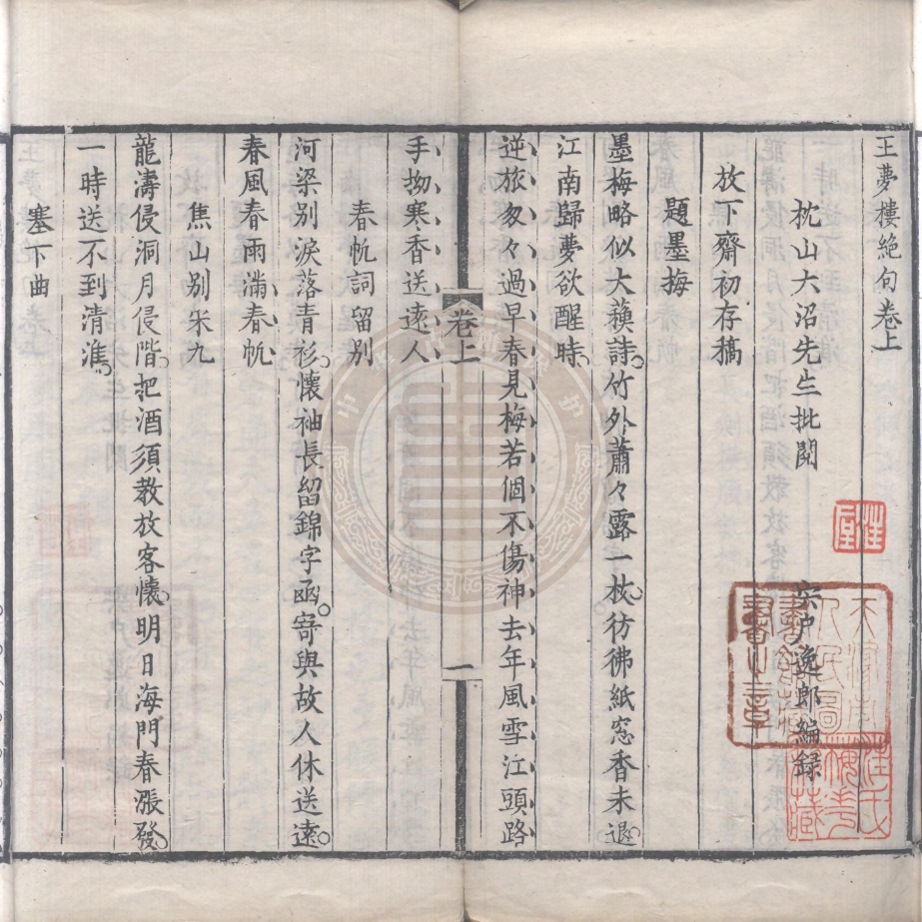 王夢樓絶句卷上
枕山大沼先生批閲
宍戸逸郎編録
放下齋初存稿
題墨梅
墨梅略似大蘓詩竹外蕭々露一枝彷彿紙窓香未退
江南歸夢欲醒時
逆旅匆々過早春見梅若個不傷神去年風雪江頭路
卷上
一
手拗寒香送遠人
春帆詞留別
河梁別淚落青衫懷袖長留錦字函寄與故人休送遠
春風春雨滿春帆
焦山別朱九
龍濤侵洞月侵階把酒須教放客懷明日海門春漲發
一時送不到清淮
塞下曲